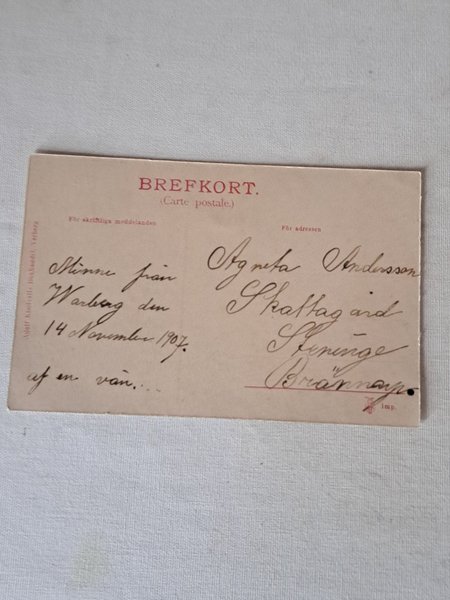 BREFKORT.
(Carte postale.)
För skriftliga meddelanden
För adressen
Minne från
Warberg den
14 November 1907.
af en vän....
Agneta Andersson
Skattagård
Steninge
Brännarp.
bokhandel, Varberg
imp.